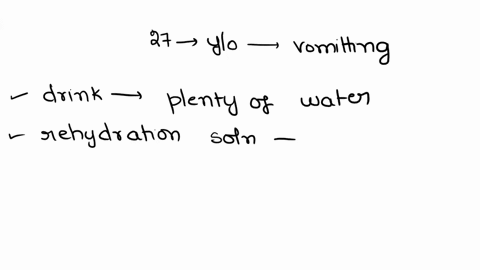 27 → y/o → vomitting
✓ drink → plenty of water
✓ rehydration soln —